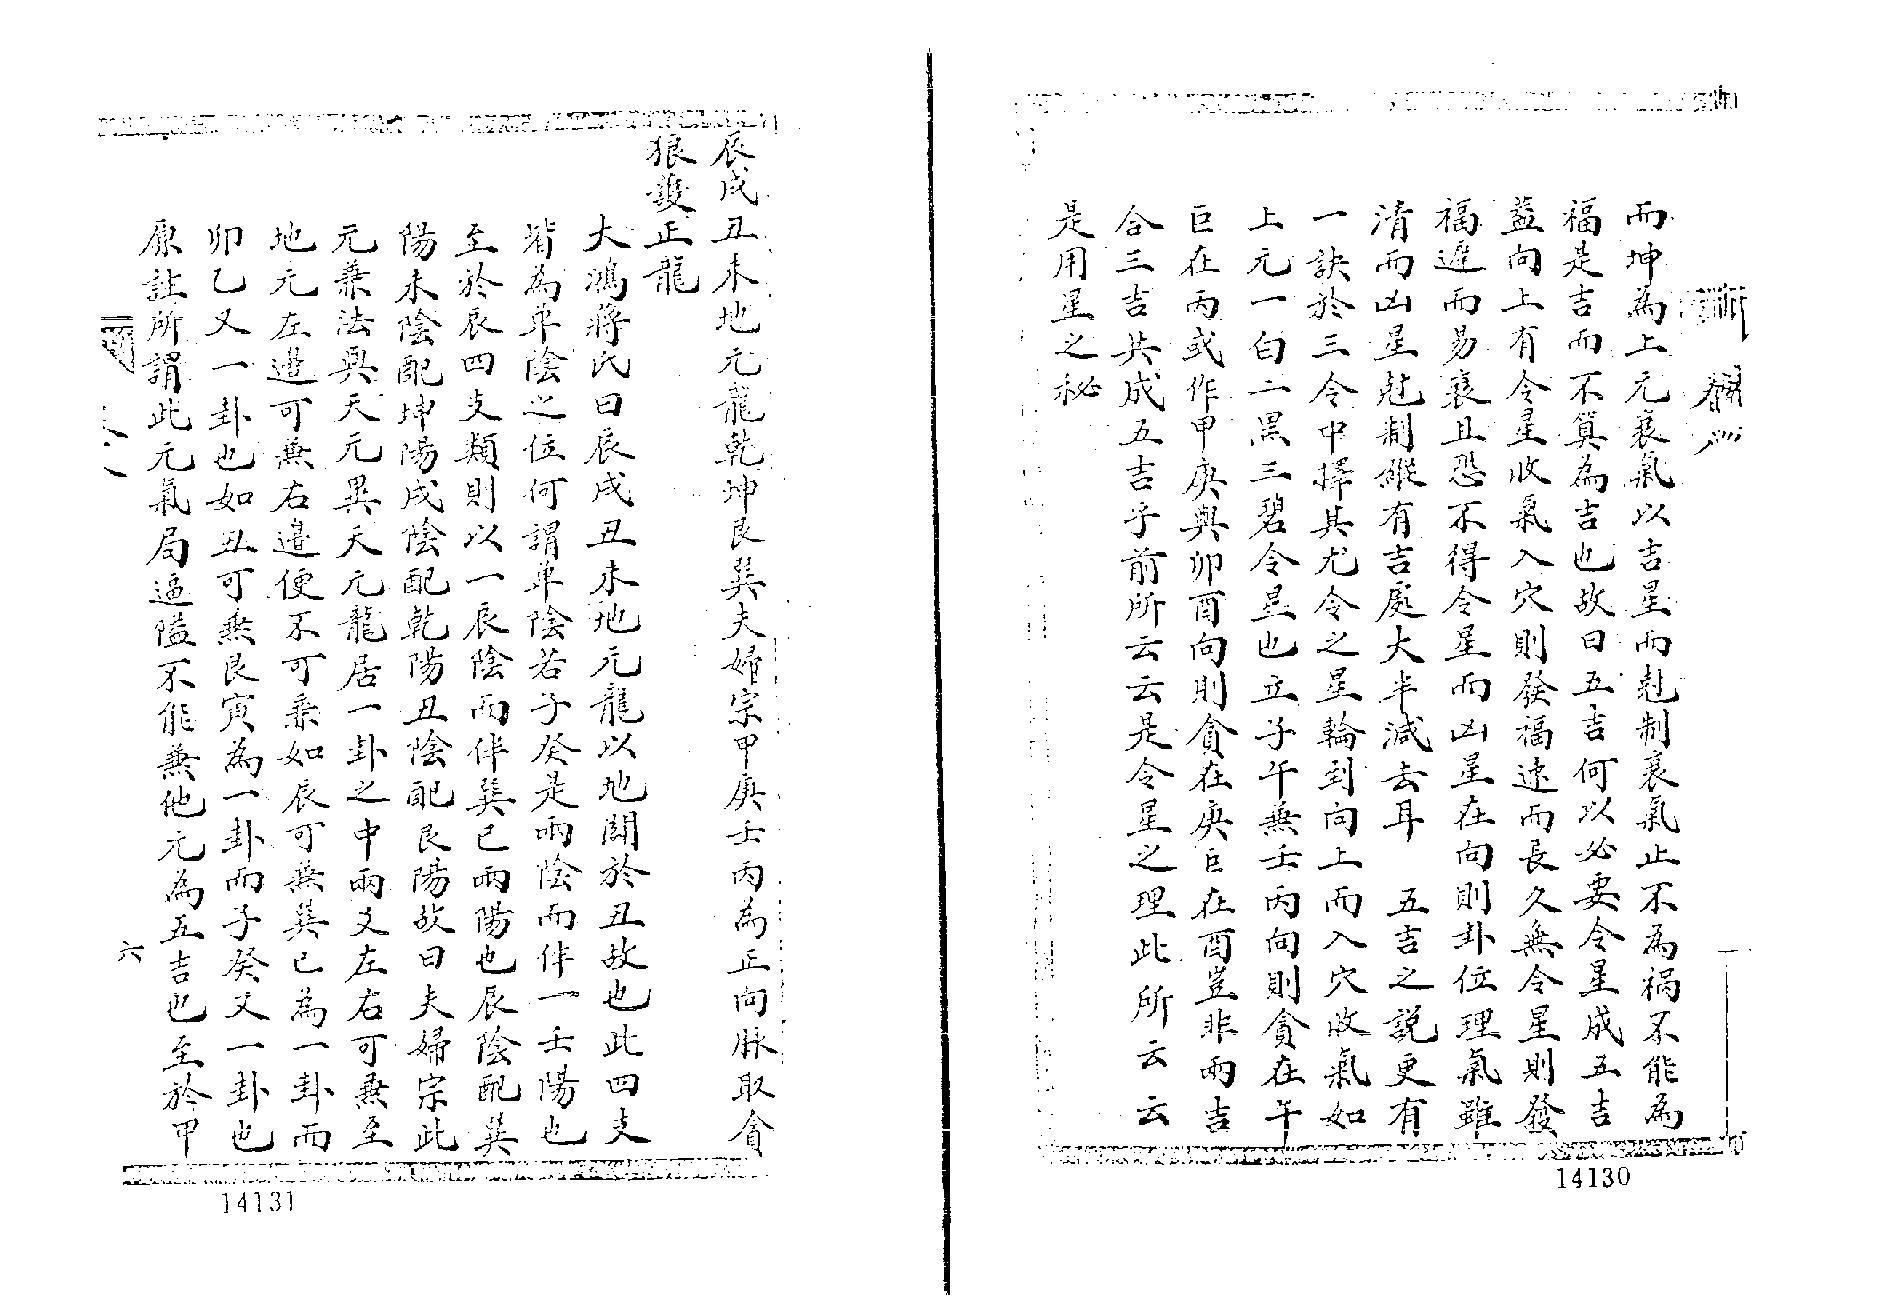 而坤為上元衰氣以吉星而尅制衰氣止不為禍不能為
福是吉而不算為吉也故曰五吉何以必要令星成五吉
蓋向上有令星收氣入穴則發福速而長久無令星則發
福遲而易衰且恐不得令星而凶星在向則卦位理氣雖
清而凶星尅制縱有吉處大半減去耳 五吉之說更有
一訣於三令中擇其尤令之星輪到向上而入穴收氣如
上元一白二黑三碧令星也立子午兼壬丙向則貪在午
巨在丙或作甲庚與卯酉向則貪在庚巨在酉豈非兩吉
合三吉共成五吉乎前所云云是令星之理此所云云
是用星之秘
14130
辰戌丑未地元龍乾坤艮巽夫婦宗甲庚壬丙為正向脉取貪
狼護正龍
大鴻蔣氏曰辰戌丑未地元龍以地闢於丑故也此四支
皆為单陰之位何謂单陰若子癸是兩陰而伴一壬陽也
至於辰四支類則以一辰陰而伴巽巳兩陽也辰陰配巽
陽未陰配坤陽戌陰配乾陽丑陰配艮陽故曰夫婦宗此
元兼法與天元異天元龍居一卦之中兩爻左右可兼至
地元左邉可兼右邉便不可兼如辰可兼巽巳為一卦而
卯乙又一卦也如丑可兼艮寅為一卦而子癸又一卦也
原註所謂此元氣局逼隘不能兼他元為五吉也至於甲
六
14131